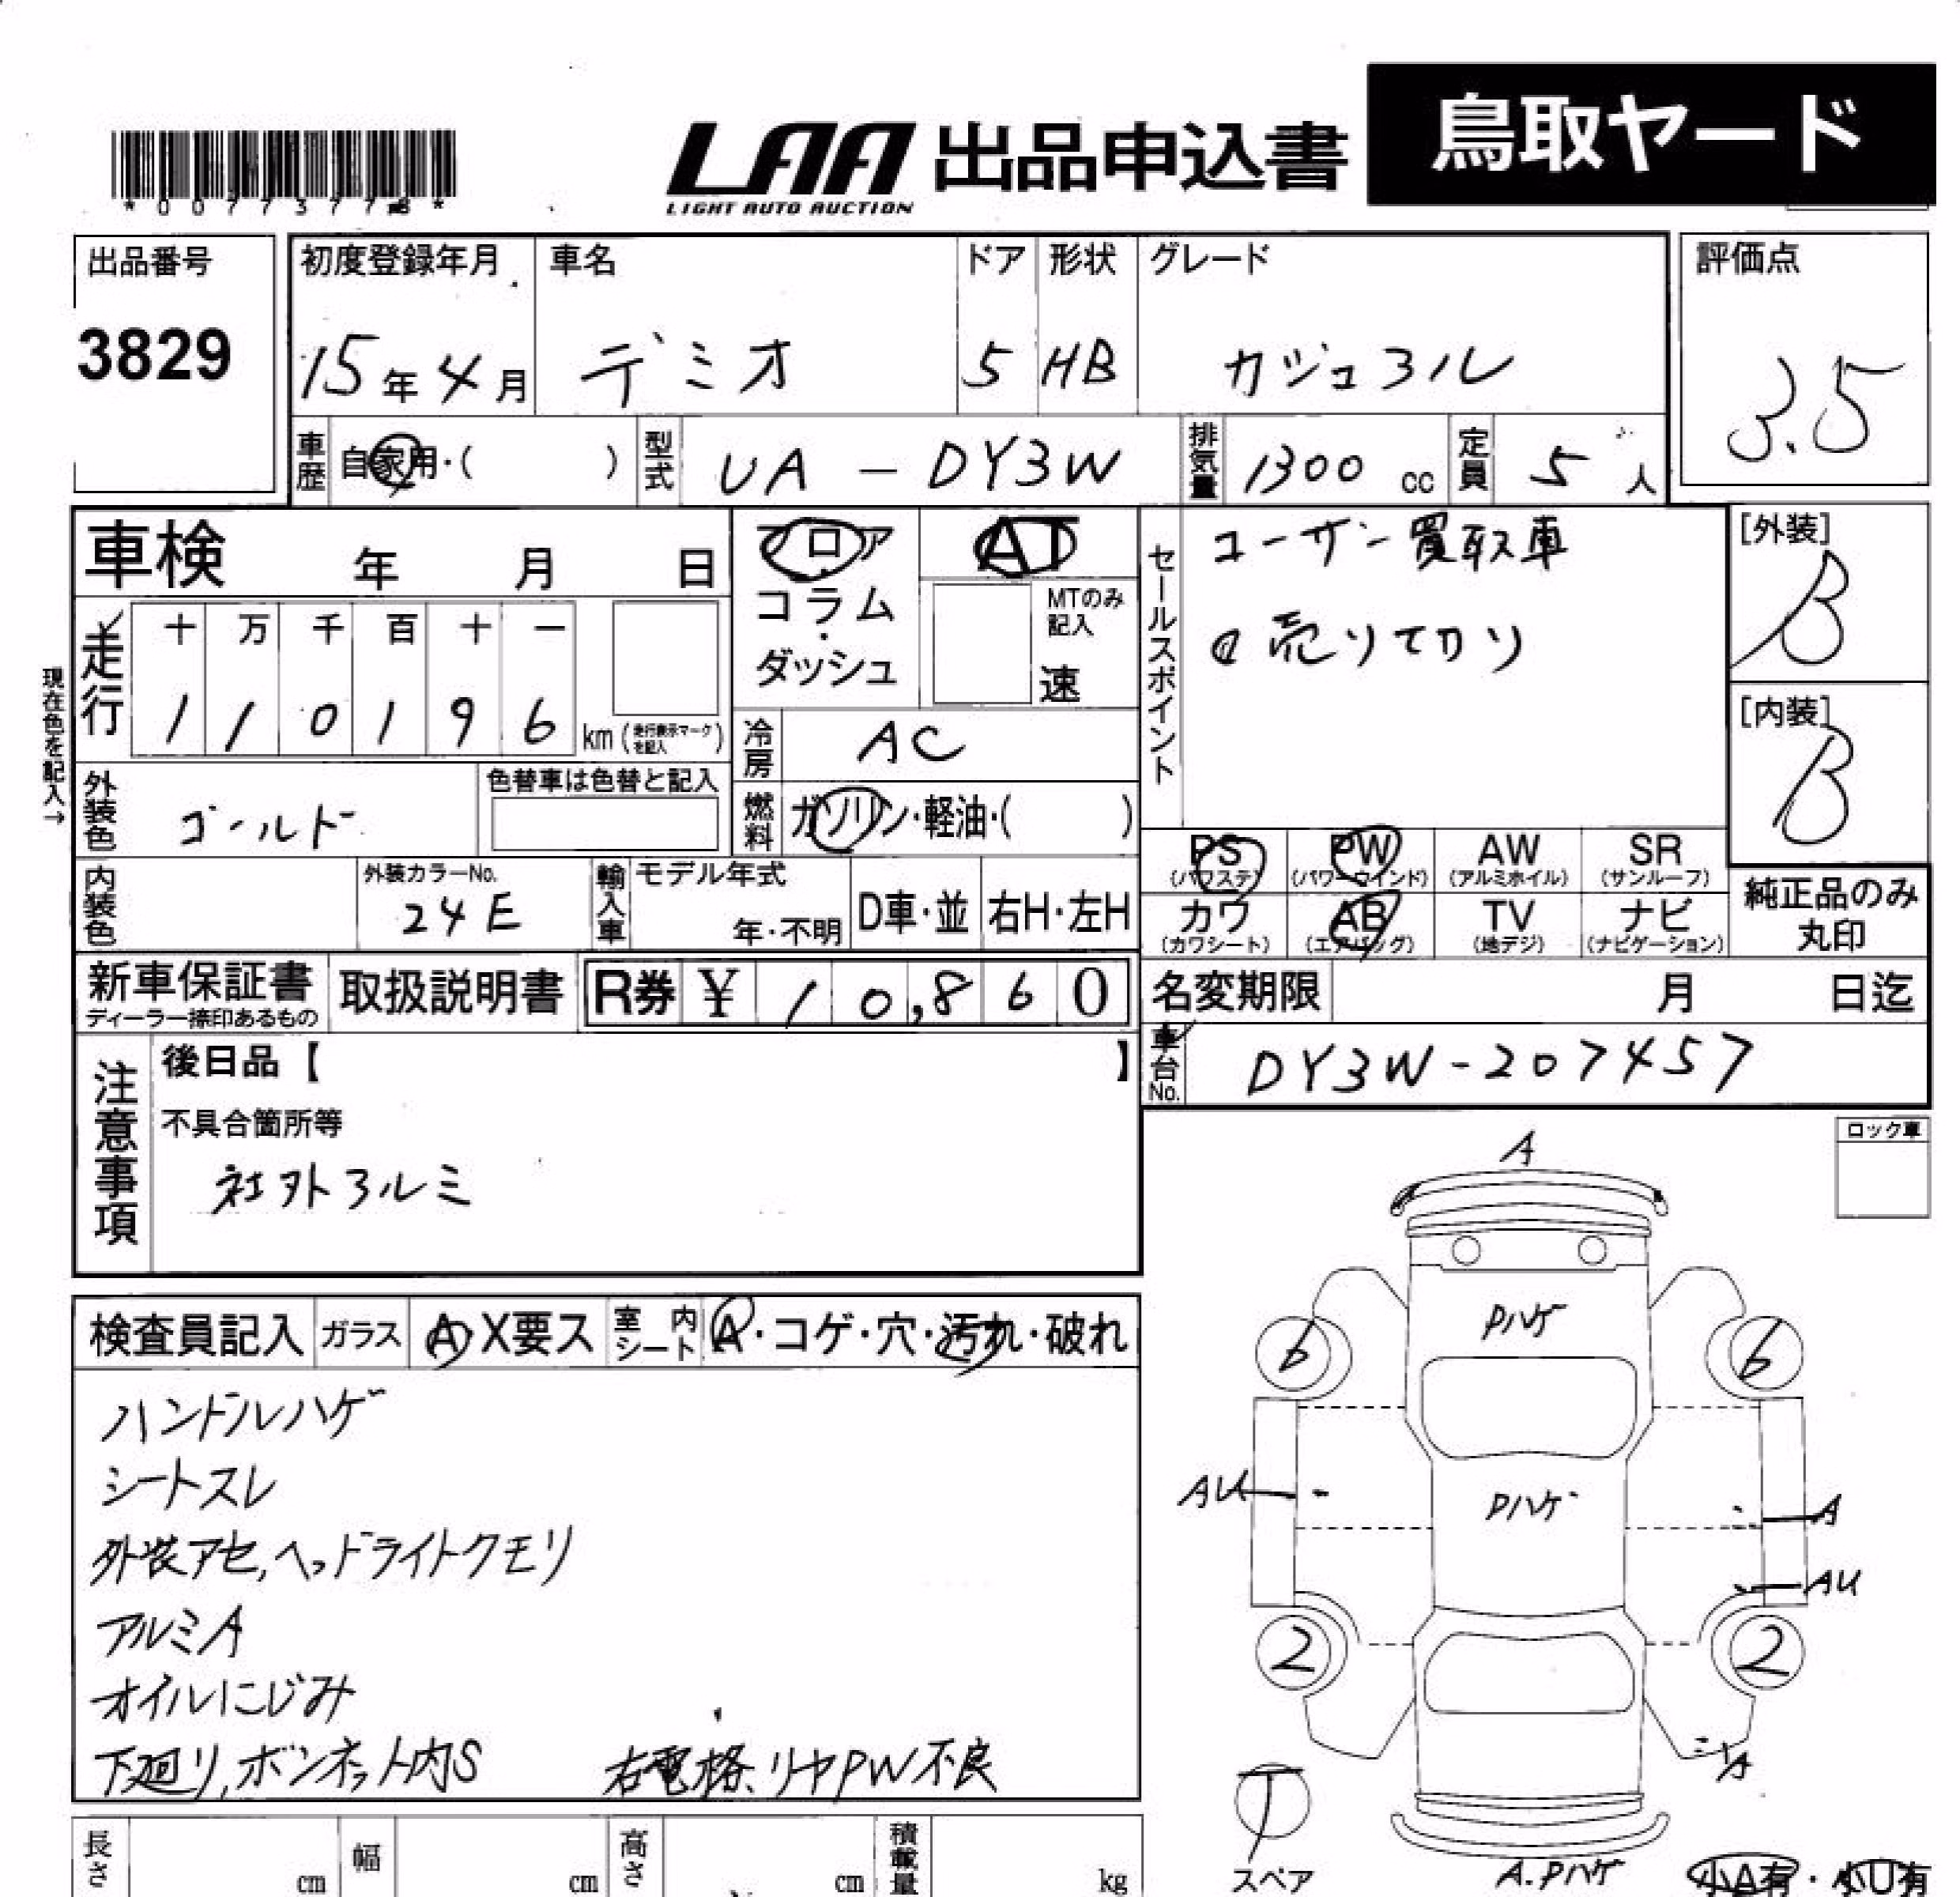 *00773778*
LAA
LIGHT AUTO AUCTION
出品申込書
鳥取ヤード
出品番号
3829
初度登録年月
15年4月
車名
デミオ
ドア
5
形状
HB
グレード
カジュアル
評価点
3.5
車歴
自家用・( )
型式
UA-DY3W
排気量
1300 cc
定員
5 人
車検 年 月 日
フロア
コラム
・
ダッシュ
AT
MTのみ
記入
速
セールスポイント
ユーザー買取車
売りてカソ
[外装]
B
[内装]
B
現在色を記入→
走行
十 万 千 百 十 一
1 1 0 1 9 6
km(走行表示マークを記入)
冷房
AC
外装色
ゴールド
色替車は色替と記入
燃料
ガソリン・軽油・( )
内装色
外装カラーNo.
24E
輸入車
モデル年式
年・不明
D車・並
右H・左H
PS
(パワステ)
PW
(パワーウインド)
AW
(アルミホイル)
SR
(サンルーフ)
カワ
(カワシート)
AB
(エアバッグ)
TV
(地デジ)
ナビ
(ナビゲーション)
純正品のみ
丸印
新車保証書
ディーラー捺印あるもの
取扱説明書
R券 ¥ 10,860
名変期限 月 日迄
車台No.
DY3W-207457
注意事項
後日品【 】
不具合箇所等
社外アルミ
ロック車
検査員記入 ガラス A・X要ス 室内シート A・コゲ・穴・汚れ・破れ
ハンドルハゲ
シートスレ
外装アセ,ヘッドライトクモリ
アルミA
オイルにじみ
下廻り,ボンネット内S 右電格、リヤPW不良
A
Pハゲ
6
6
Pハゲ
AU
A
AU
2
2
A
T
スペア
A.Pハゲ
小A有・小U有
長さ cm
幅 cm
高さ cm
積載量 kg